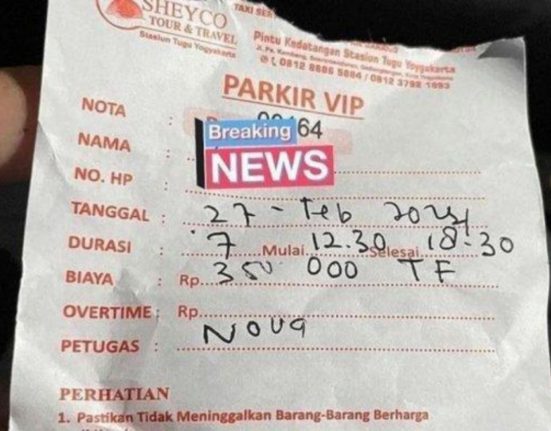 SHEYCO
TAXI SE
TOUR & TRAVEL
Stasiun Tugu Yogyakarta
Pintu Kedatangan Stasiun Tugu Yogyakarta
PARKIR VIP
NOTA : 64
Breaking
NEWS
NAMA :
NO. HP :
TANGGAL : 27 - Feb 2024
DURASI : 7 Mulai 12.30 Selesai 18.30
BIAYA : Rp. 350 000 TF
OVERTIME : Rp.
PETUGAS : NOVA
PERHATIAN
1. Pastikan Tidak Meninggalkan Barang-Barang Berharga